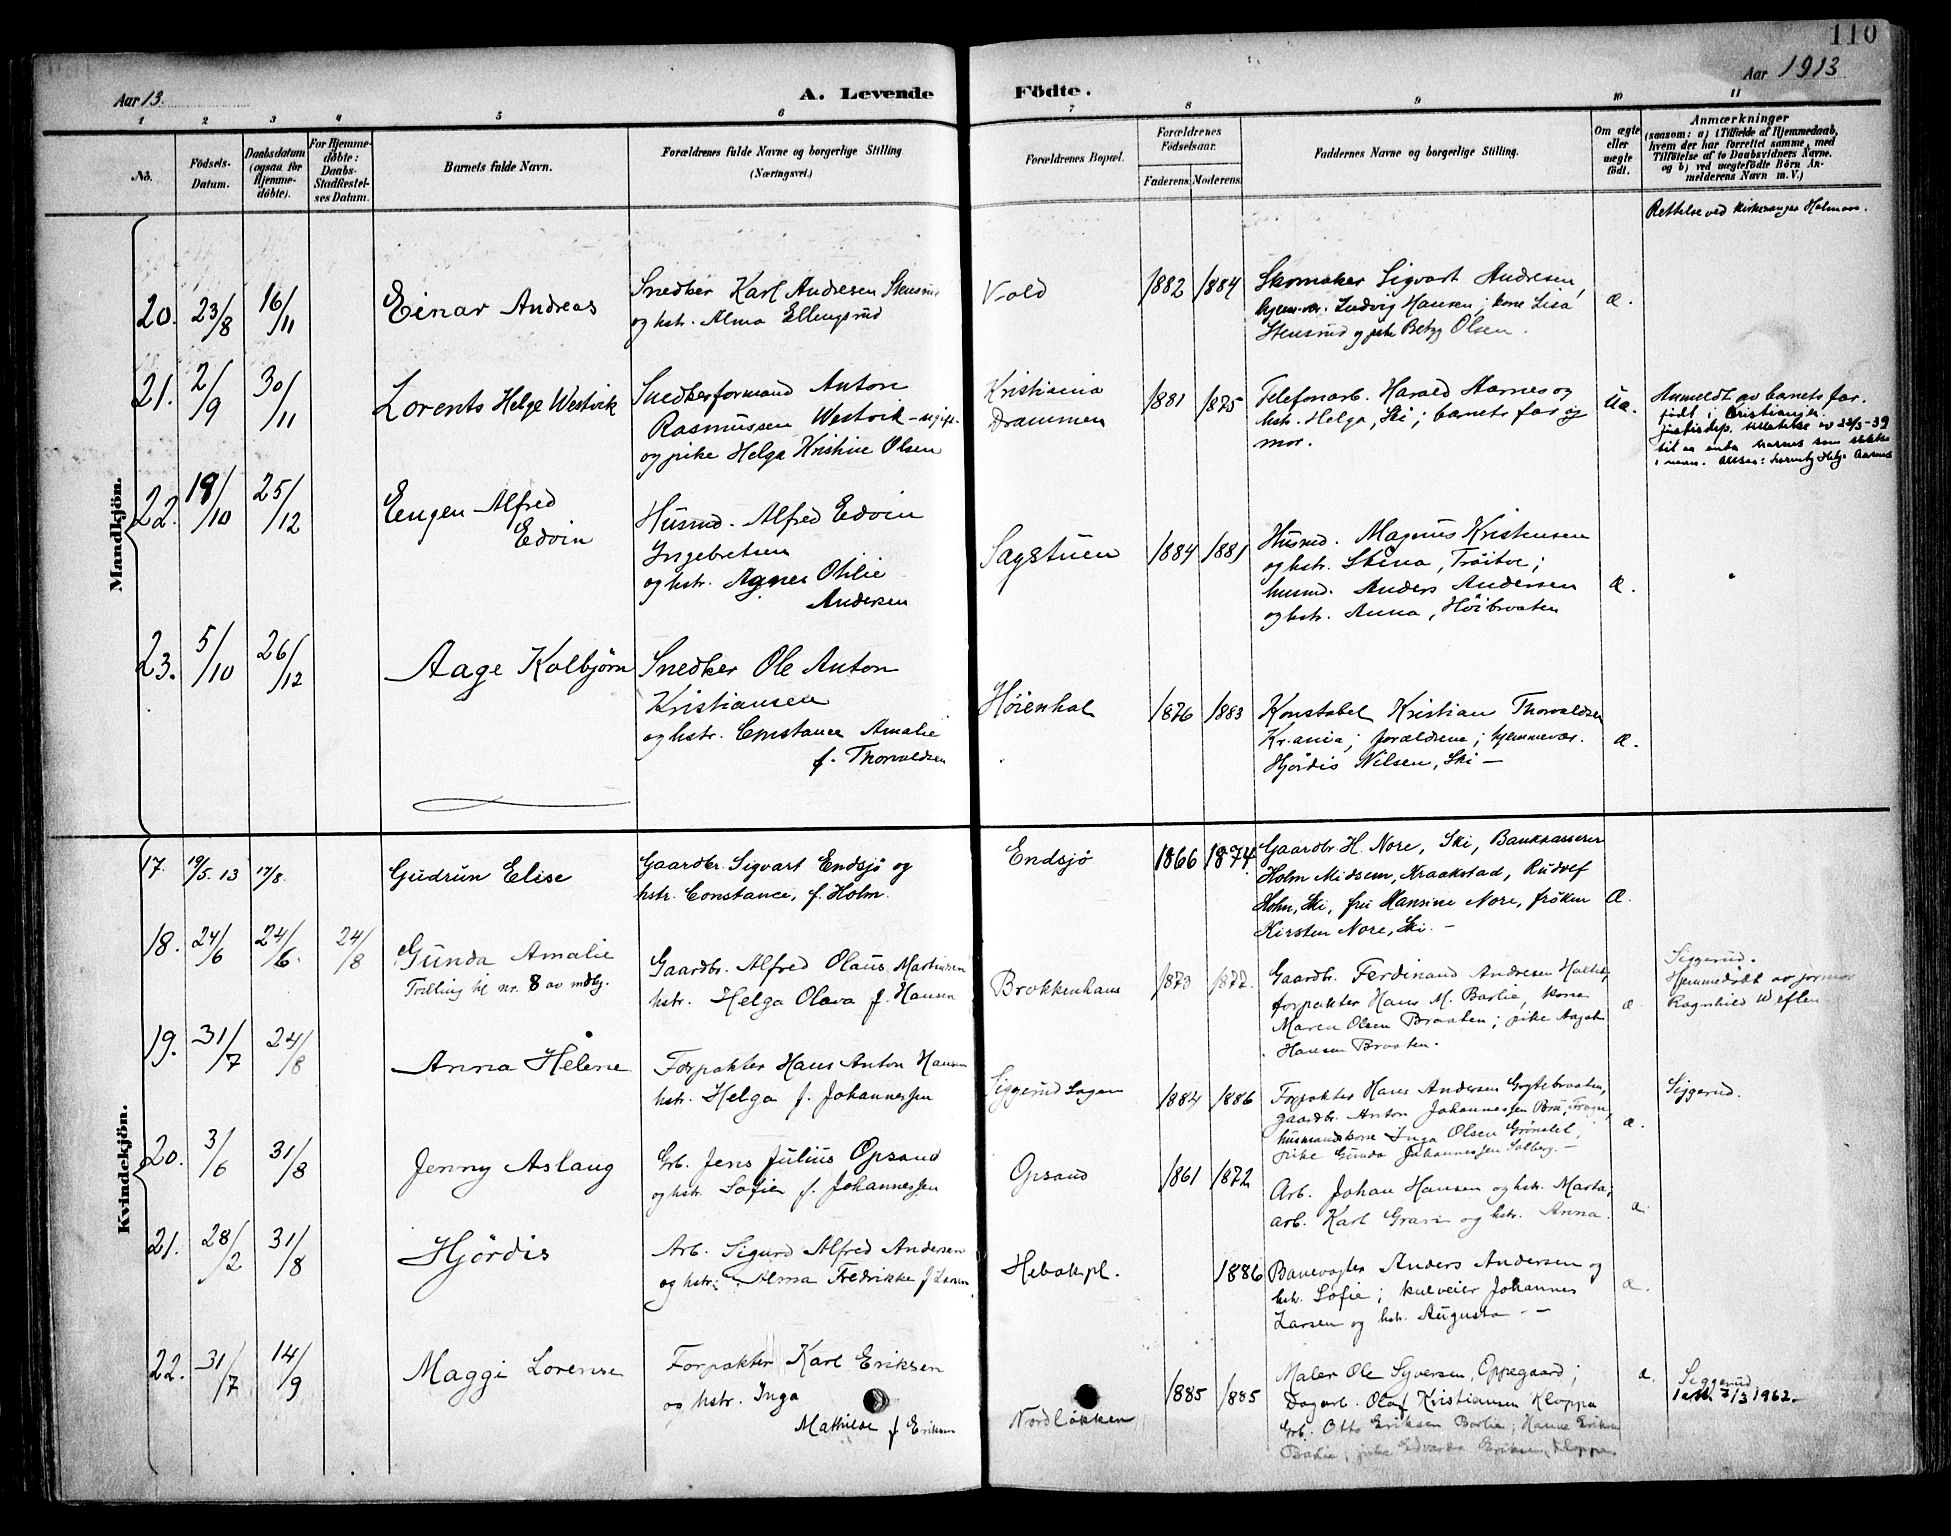 110
Aar 13.
A. Levende Födte.
Aar 1913
1 2 3 4 5 6 7 8 9 10 11
No.
Födsels-Datum.
Daabsdatum (ogsaa for Hjemme-döbte).
For Hjemme-döbte: Daabs-Stadfæstel-ses Datum.
Barnets fulde Navn.
Forældrenes fulde Navne og borgerlige Stilling (Næringsvei.)
Forældrenes Bopæl.
Forældrenes Födselsaar.
Faderens. Moderens.
Faddernes Navne og borgerlige Stilling.
Om ægte eller uægte födt.
Anmærkninger
(saasom: a) i Tilfælde af Hjemmedaab,
hvem der har forrettet samme, med
Tilföielse af to Daabsvidners Navne.
og b) ved uægtefödte Börn An-
melderens Navn m. V.)
Rettelse ved kirkesanger Holmsen.
Mandkjön.
20. 23/8 16/11 Einar Andreas
Snedker Karl Andresen Stensrud
og hstr. Alma Ellingsrud
Vold 1882 1884
Skomaker Sigvart Andresen,
Ludvig Hansen; kone Lisa
Stensrud og pike Betzy Olsen.
æ.
21. 2/9 30/11 Lorents Helge Westvik
Snedkerformand Anton
Rasmussen Westvik – ugift
og pike Helga Kristine Olsen
Kristiania
Drammen
1881 1875
Telefonarb. Harald Aarnes og
hstr. Helga, Ski; barnets far og
mor.
uæ.
Anmeldt av barnets far.
født i Kristiania.
til aa anta Aarnes som slekts
navn.
22. 19/10 25/12 Eugen Alfred
Edvin
Husmd. Alfred Edvin
Ingebretsen
og hstr. Agnes Otilie
Andersen
Sagstuen 1884 1881
Husmd. Magnus Kristensen
og hstr. Stina,
husmd. Anders Andersen
og hstr. Anna, Höibraaten
æ.
23. 5/10 26/12 Aage Kolbjørn
Snedker Ole Anton
Kristiansen
og hstr. Constance Amalie
f. Thorvaldsen
1876 1883
Konstabel Kristian Thorvaldsen
Kr.ania; forældrene; hjemmevær.
Hjördis Nilsen, Ski –
æ.
Kvindekjön.
17. 19/5 13 17/8. Gudrun Elise
Gaardbr. Sigvart Endsjø og
hstr. Constance, f. Holm.
Endsjø 1866 1874.
Gaardbr H. Nore, Ski, Bankkasserer
Holm Midsem, Kraakstad,
Holm, Ski, fru Hansine Nore, frøken
Kirsten Nore, Ski. –
Æ.
18. 24/6 24/6. 24/8 Gunda Amalie
Tvilling til nr. 8 av mdkj.
Gaardbr. Alfred Olaus Martinsen
hstr. Helga Olava f. Hansen
Brokkenhaus 1873 1872.
Gaardbr. Ferdinand Andresen
forpakter Hans M. Barlie, kone
Maren Olsen Braaten; pike Aagot
Hansen Braaten.
æ
Siggerud.
Hjemmedøbt av jormor
Ragnhild Weflen
19. 31/7 24/8 Anna Helene
Forpakter Hans Anton Hansen
hstr. Helga f. Johannessen
Siggerud Sagen 1884 1886
Forpakter Hans Andersen Grytebraaten,
gaardbr. Anton Johannessen Bru, Frogn,
husmandskone Inga Olsen Grønslet,
pike Gunda Johannessen Solberg. –
æ.
Siggerud.
20. 3/6 31/8 Jenny Aslaug
Grb. Jens Julius Opsand
og hstr. Sofie f. Johannessen
Opsand 1861 1872
Arb. Johan Hansen og hstr. Marta;
arb. Karl Grasi og hstr. Anna.
æ.
21. 28/2 31/8 Hjördis
Arb. Sigurd Alfred Andersen
og hstr. Alma Fredrikke f Larsen
Hebækpl. 1886
Banevogter Anders Andersen og
hstr. Sofie; kulveier Johannes
Larsen og hstr. Augusta. –
æ.
22. 31/7 14/9 Maggi Lorense
Forpakter Karl Eriksen
og hstr. Inga
Mathilde f Eriksen
Nordløkken 1885 1885
Maler Ole Syversen, Oppegaard;
Dagarb. Olaf Kristiansen Kloppa
Grb. Otto Eriksen Barlie; Hanne Eriksen
Barlie; pike Edvarda Eriksen, Kloppa.
æ.
Siggerud.
7/3 1962.